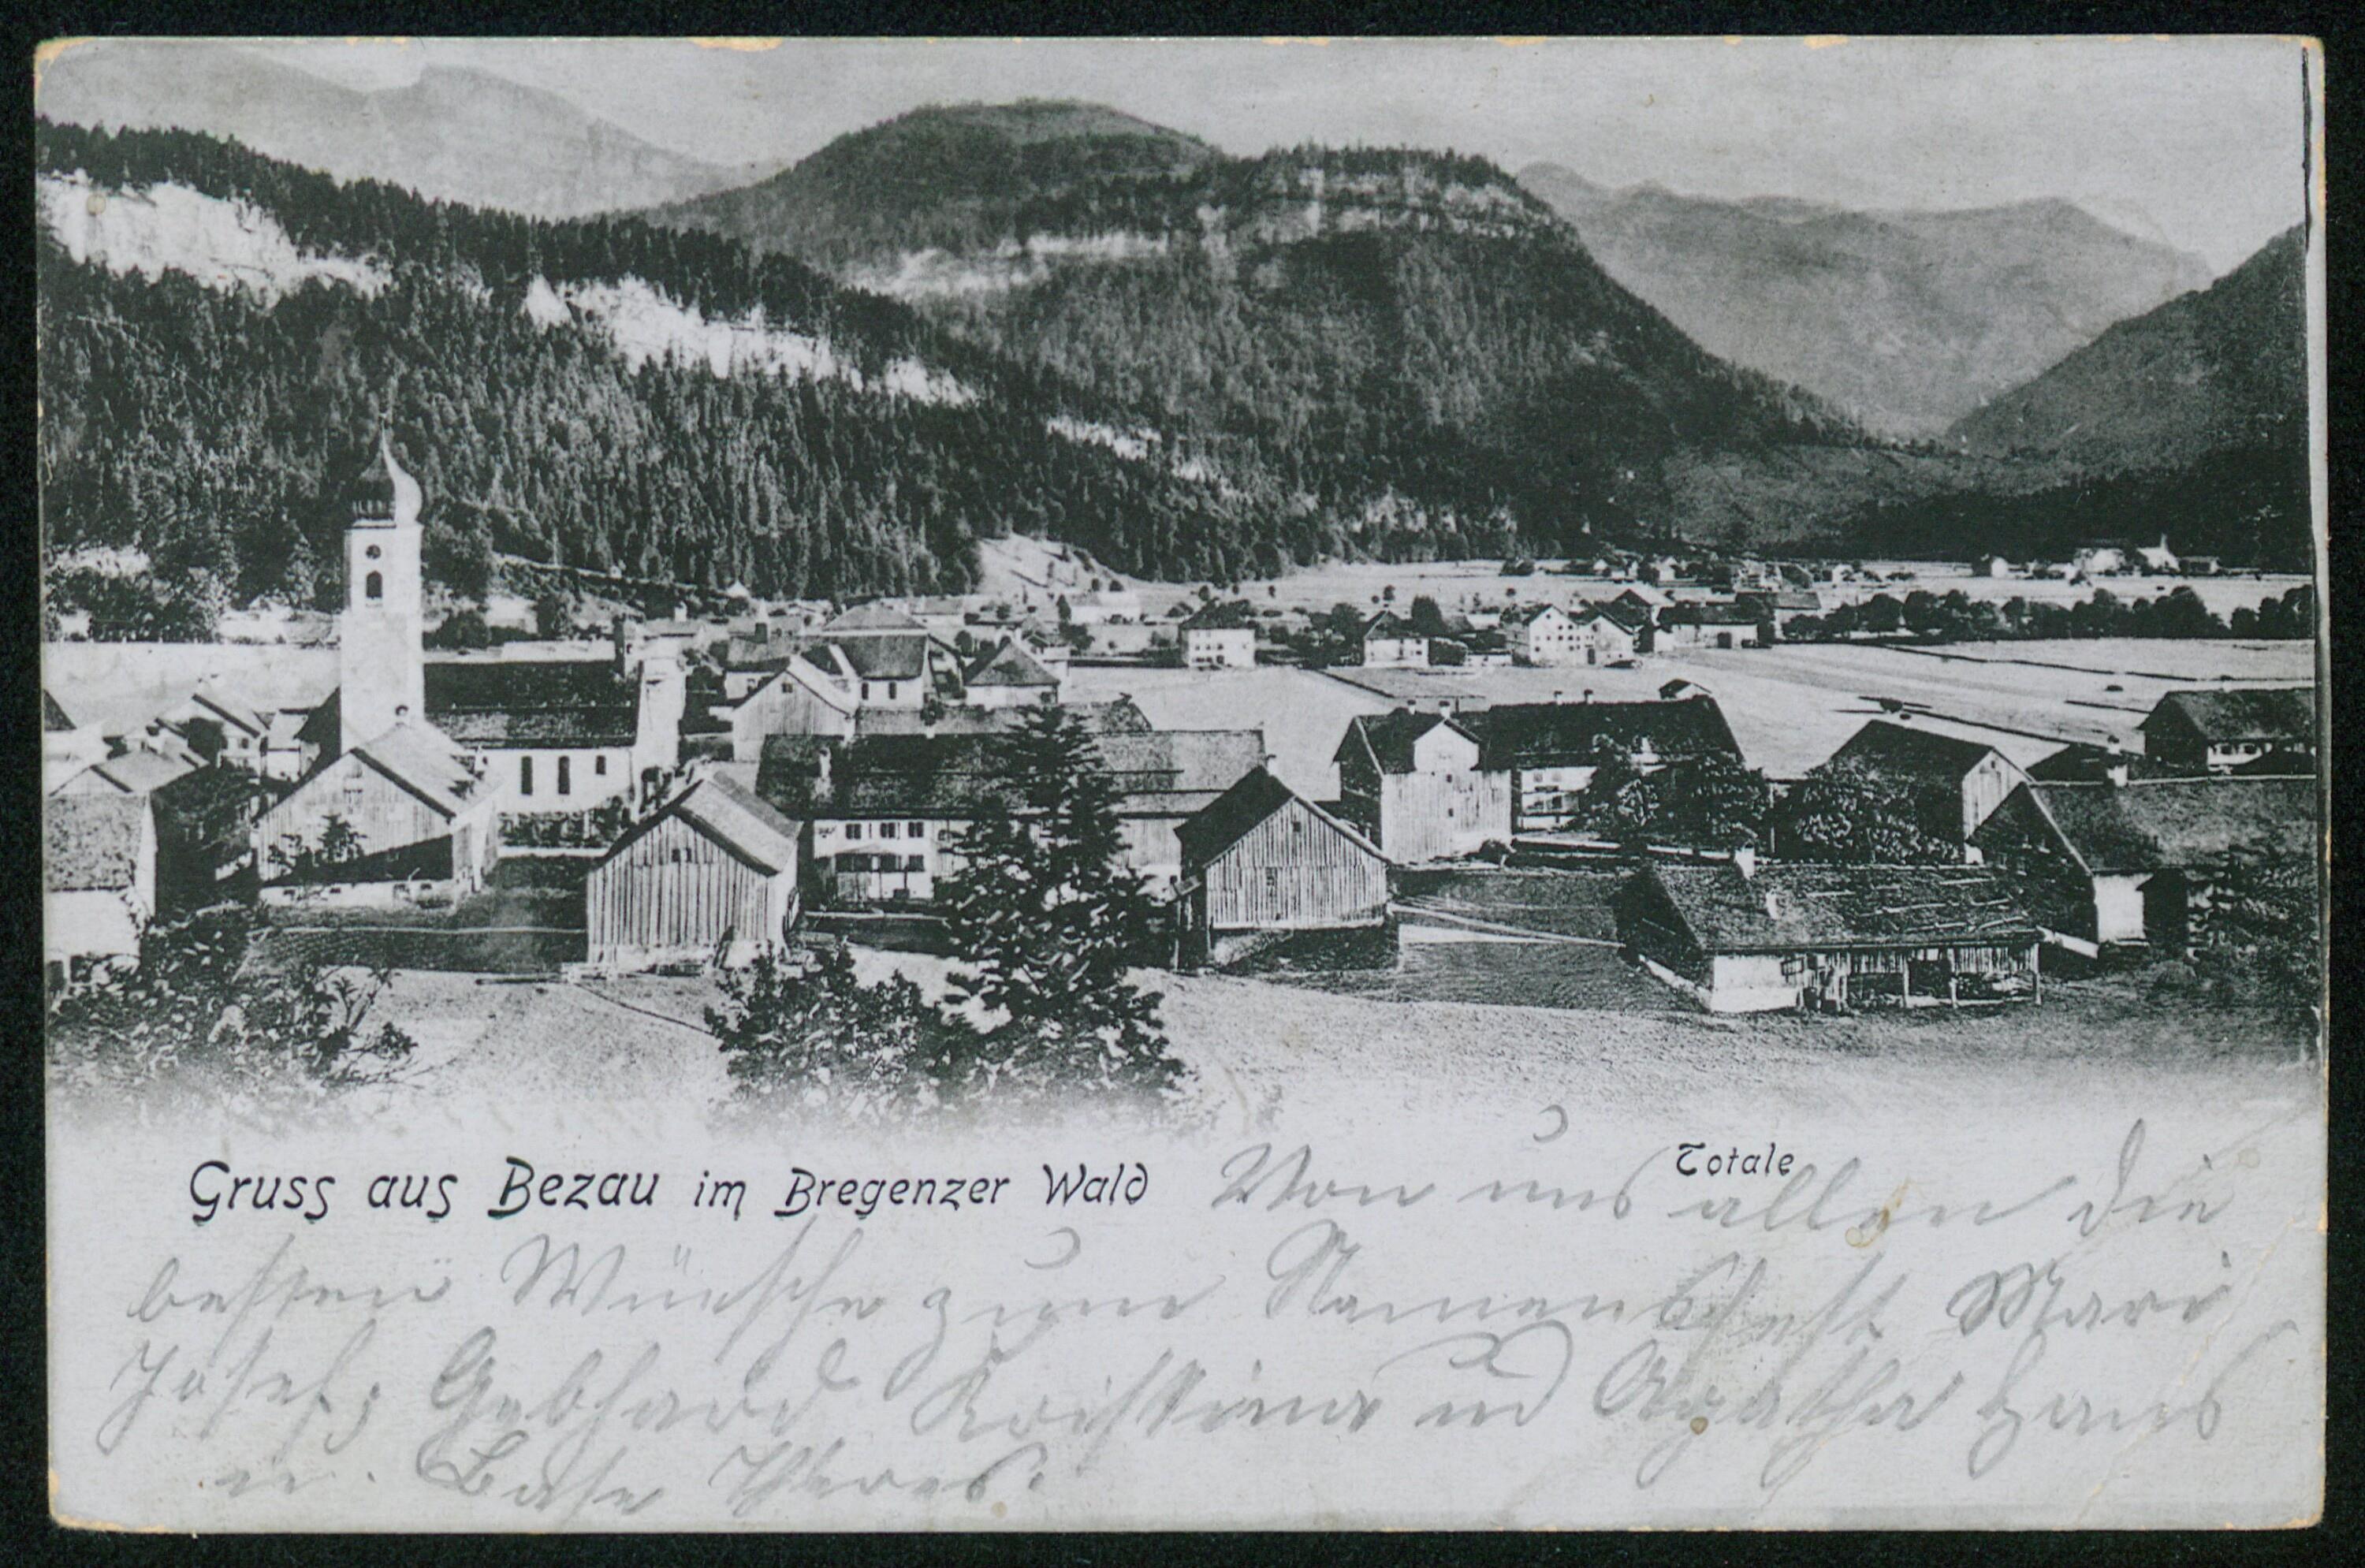 Gruss aus Bezau im Bregenzer Wald
Totale
Von uns allen die
besten Wünsche zum Namensfest Mari
Josef, Gebhard Kristina und Agatha Hans
u. Base Theres.